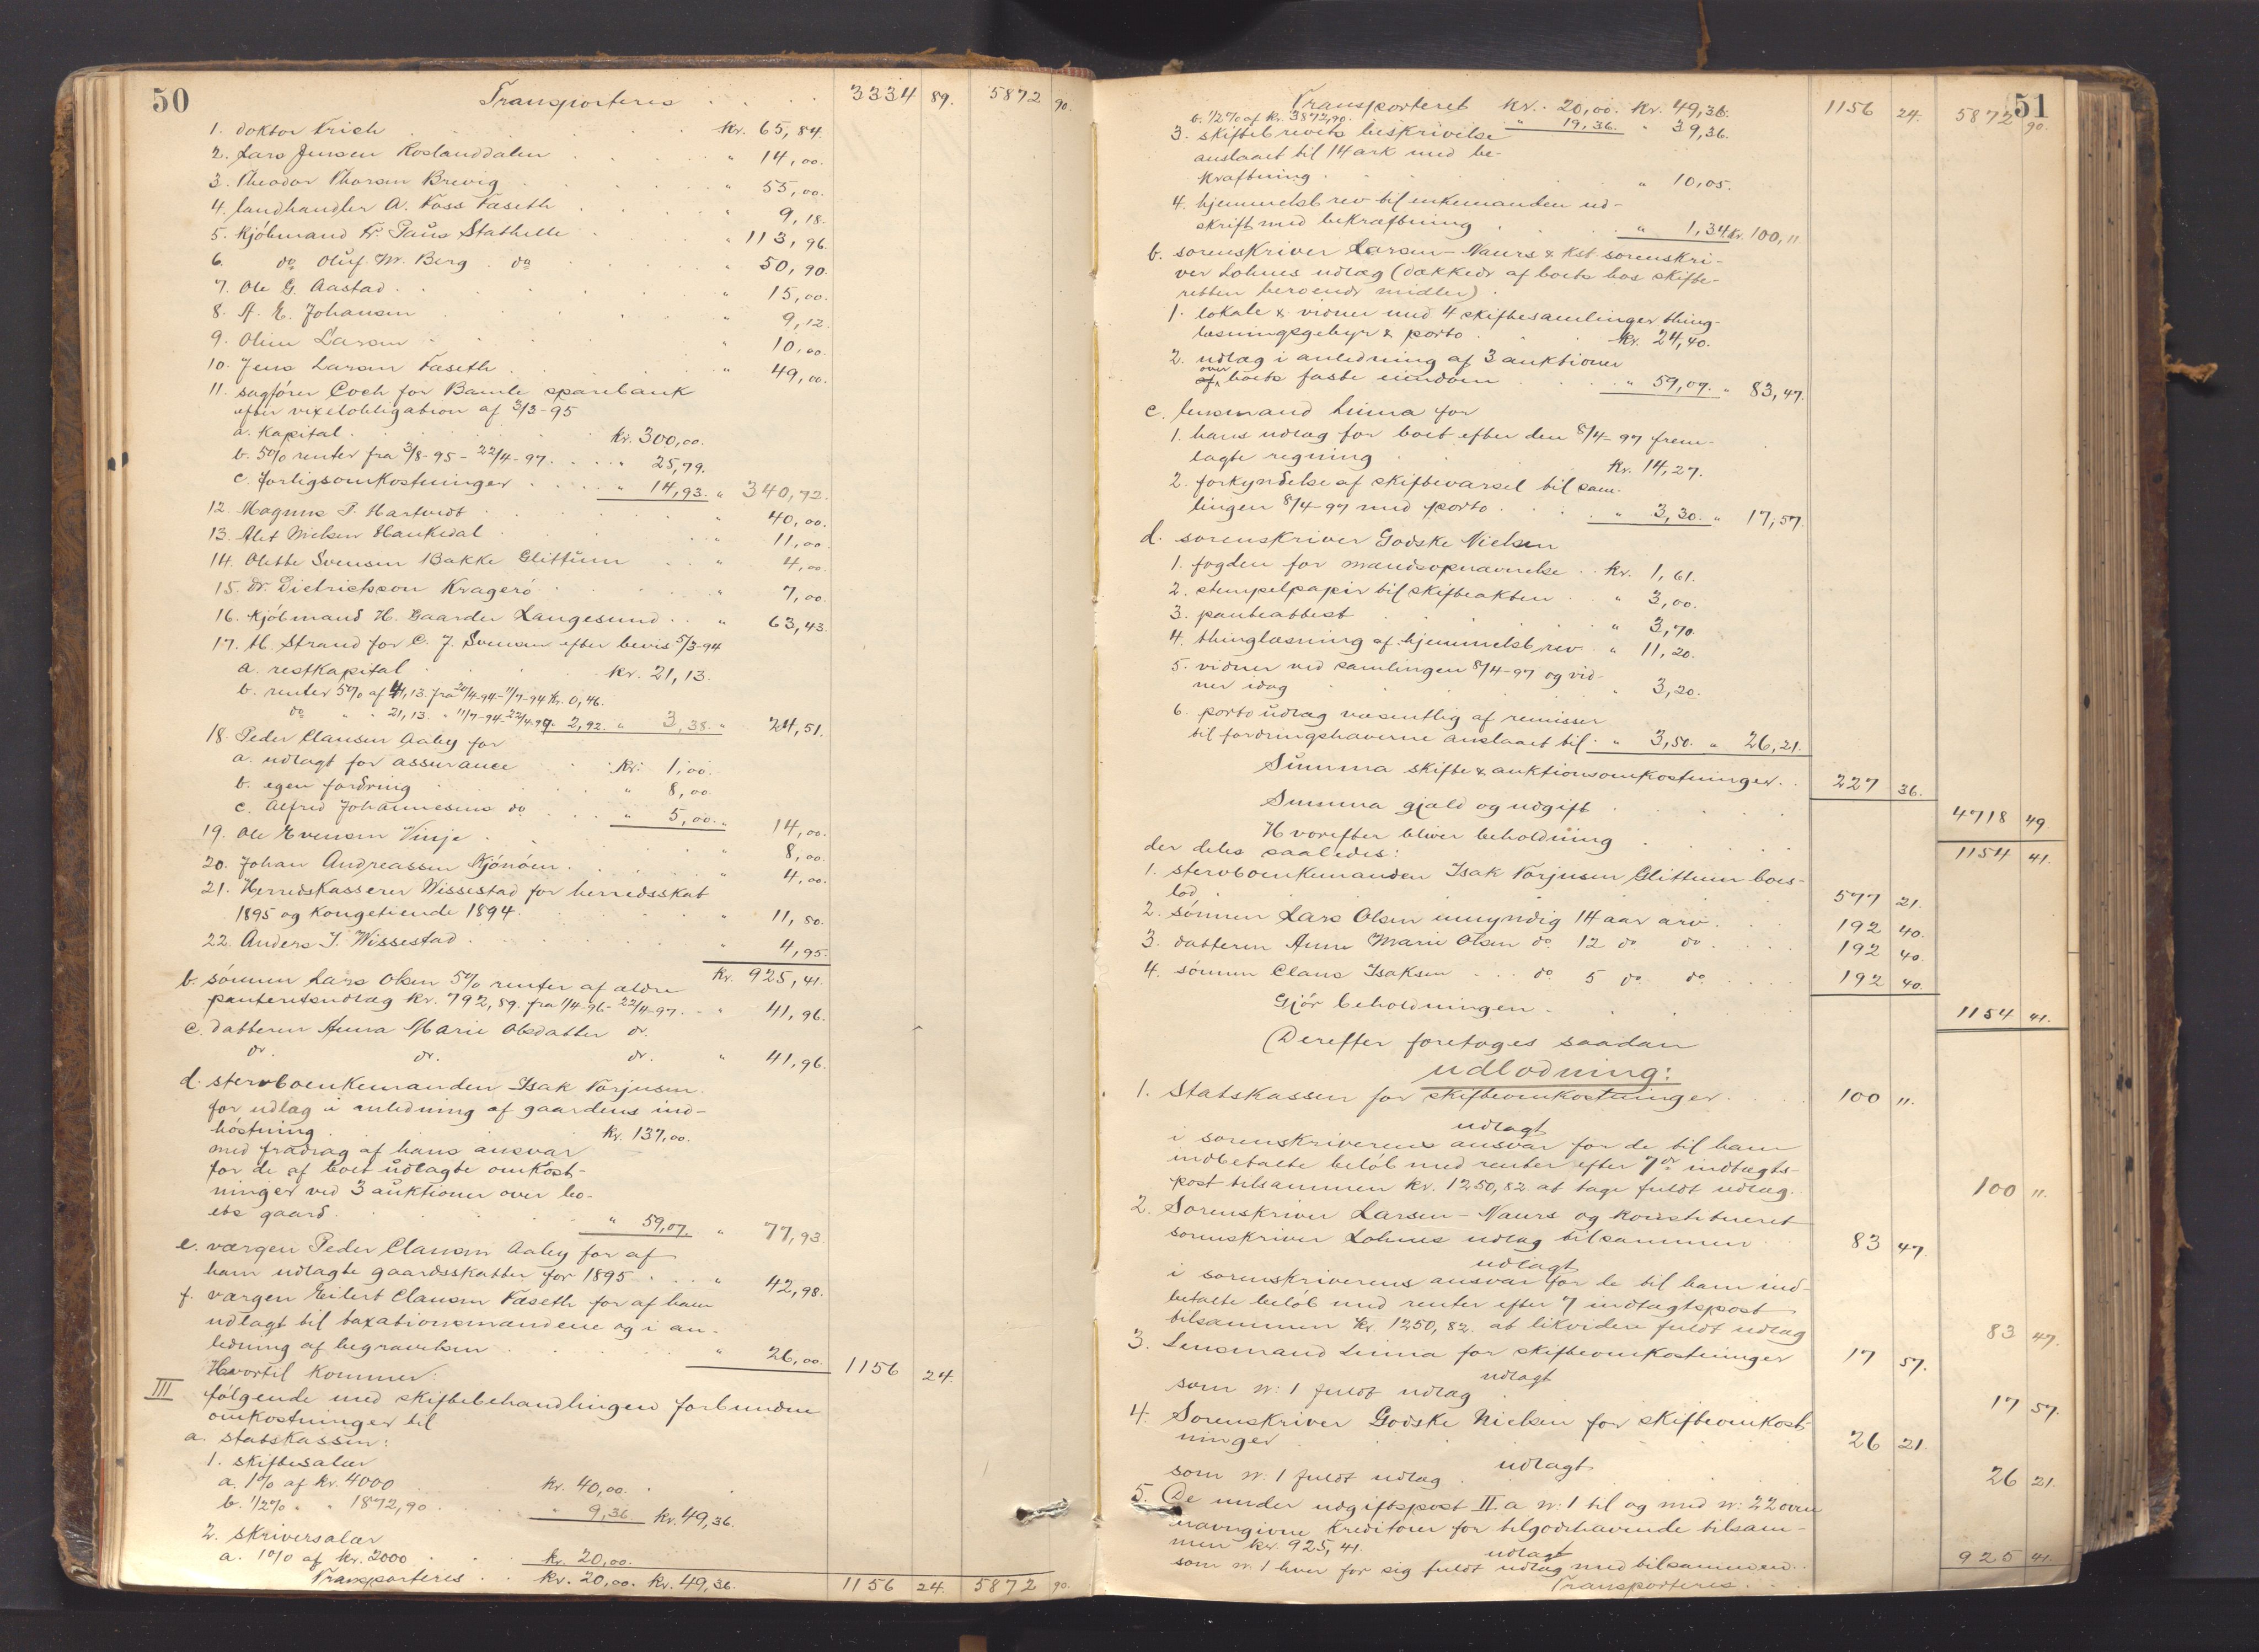 50
Transporteres . . . . 3334 89. 5872 90.
1. doktor Frich . . . kr. 65,84.
2. Lars Jensen Roslanddalen . . . " 14,00.
3. Theodor Thorsen Brevig . . . " 55,00.
4. landhandler A. Foss Fæseth . . . 9,18.
5. Kjöbmand Fr. Paus Stathelle . . . " 113,96.
6. do Oluf M. Berg do . . . " 50,90.
7. Ole G. Aastad . . . " 15,00.
8. A. E. Johansen . . . " 9,12.
9. Olium Larsen . . . " 10,00.
10. Jens Larsen Fæseth . . . " 49,00.
11. sagförer Coch for Bamle sparebank
efter vexelobligation af 3/3-95
a. Kapital . . . kr. 300,00.
b. 5% renter fra 3/8-95 - 22/4-97 . . . " 25,79.
c. forligsomkostninger . . . " 14,93. " 340,72.
12. Magnus P. Hartvedt . . . " 40,00.
13. Alet Nielsen Haukedal . . . " 11,00.
14. Olette Svensen Bakke Glittum . . . " 4,00.
15. Dr. Dietrichson Kragerö . . . " 7,00.
16. Kjöbmand H. Gaarder Langesund . . " 63,43.
17. M. Strand for C. J. Svensen efter bevis 5/3-94
a. restkapital . . . kr. 21,13.
b. renter 5% af 41,13. fra 20/4-94-11/7-94 kr. 0,46.
do " " 21,13. " 11/7-94-22/4-97. 2,92. " 3,38. " 24,51.
18. Peder Clausen Aaby for
a. udlagt for assurance . . kr. 1,00.
b. egen fordring . . . " 8,00.
c. Alfred Johannesens do . . . " 5,00. " 14,00.
19. Ole Evensen Vinje . . . " 8,00.
20. Johan Andreassen Kjönöen . . . " 4,00.
21. Herredskasserer Wissestad for herredsskat
1895 og Kongetiende 1894. . . . " 11,80.
22. Anders T. Wissestad . . . " 4,95.
kr. 925,41.
b. sönnen Lars Olsen 5% renter af ældre
panteretsudlæg kr. 792,89. fra 1/4-96-22/4-97. . " 41,96.
c. datteren Anna Marie Olsdatter do.
do. do. do. " 41,96.
d. stervboenkemanden Isak Torjusen
for udlæg i anledning af gaardens ind-
höstning . . . kr. 137,00.
med fradrag af hans ansvar
for de af boet udlagte omkost-
ninger ved 3 auktioner over bo-
ets gaard . . . " 59,07. " 77,93.
e. værgen Peder Clausen Aaby for af
ham udlagte gaardsskatter for 1895 . . . " 42,98.
f. værgen Eilert Clausen Fæseth for af ham
udlagt til taxationsmændene og i an-
ledning af begravelsen . . . " 26,00. 1156 24.
Hvortil kommer:
III følgende med skiftebehandlingen forbundne
omkostninger til
a. statskassen:
1. skiftesalær
a. 1% af kr. 4000 . . . kr. 40,00.
b. 1/2% " " 1872,90 . . . " 9,36 kr. 49,36.
2. skriversalær
a. 1% af kr. 2000 . . . kr. 20,00.
Transporteres . . kr. 20,00. kr. 49,36. 1156 24. 5872 90.
51
Transporteret kr. 20,00. kr. 49,36. 1156 24. 5872 90.
b. 1/2% af kr. 3872,90. " 19,36. " 39,36.
3. skiftebrevets beskrivelse
anslaaet til 14 ark med be-
kræftning . . . " 10,05.
4. hjemmelsbrev til enkemanden ud-
skrift med bekræftning . . . " 1,34 kr. 100,"
b. sorenskriver Larsen-Naurs & kst. sorenskri-
ver Lohnes udlæg (dækkede af boets hos skifte-
retten beroende midler).
1. lokale & vidner med 4 skiftesamlinger thing-
læsningsgebyr & porto . . . kr. 24,40.
2. udlæg i anledning af 3 auktioner
over
af boets faste eiendom . . . " 59,07. " 83,47.
c. lensmand Linna for
1. hans udlæg for boet efter den 8/4-97 frem-
lagte regning . . . kr. 14,27.
2. forkyndelse af skiftevarsel til sam-
lingen 8/4-97 med porto . . . " 3,30. " 17,57.
d. sorenskriver Godske Nielsen
1. fogden for mandsopnævnelse . . kr. 1,61.
2. stempelpapir til skifteakten . . " 3,00.
3. panteattest . . . " 3,70.
4. thinglæsning af hjemmelsbrev . " 11,20.
5. vidner ved samlingen 8/4-97 og vid-
ner idag . . . " 3,20.
6. porto udlæg væsentlig af remisser
til fordringshaverne anslaaet til . " 3,50. " 26,21.
Summa skifte & auktionsomkostninger . . 227 36.
Summa gjæld og udgift . . . 4718 49
Hvorefter bliver beholdning . . . 1154 41.
der deles saaledes:
1. stervboenkemanden Isak Torjusen Glittum boes-
lod . . . 577 21.
2. sönnen Lars Olsen umyndig 14 aar arv . . . 192 40.
3. datteren Anne Marie Olsen do 12 do do . . . 192 40.
4. sönnen Claus Isaksen . . . do 5 do do . . . 192 40.
Gjör beholdningen . . . 1154 41.
Derefter foretages saadan
udlodning:
1. Statskassen for skifteomkostninger . . . 100 ".
udlagt
i sorenskriverens ansvar for de til ham
indbetalte belöb med renter efter 7de indtægts-
post tilsammen kr. 1250,82 at tage fuldt udlæg . . 100 ".
2. Sorenskriver Larsen-Naurs og konstitueret
sorenskriver Lohnes udlæg tilsammen . . 83 47.
udlagt
i sorenskriverens ansvar for de til ham ind-
betalte belöb med renter efter 7 indtægtspost
tilsammen kr. 1250,82. at likvidere fuldt udlæg 83 47.
3. Lensmand Linna for skifteomkostninger 17 57.
udlagt
som nr: 1 fuldt udlæg . . . 17 57.
4. Sorenskriver Godske Nielsen for skifteomkost-
ninger . . . 26 21.
udlagt
som nr: 1 fuldt udlæg . . . 26 21.
5. De under udgiftspost II. a nr: 1 til og med nr: 22 oven
navngivne kreditorer for tilgodehavende tilsam-
men kr. 925,41.
udlagt
som nr. 1 hver for sig fuldt udlæg med tilsammen . . 925 41.
Transporteres . . .